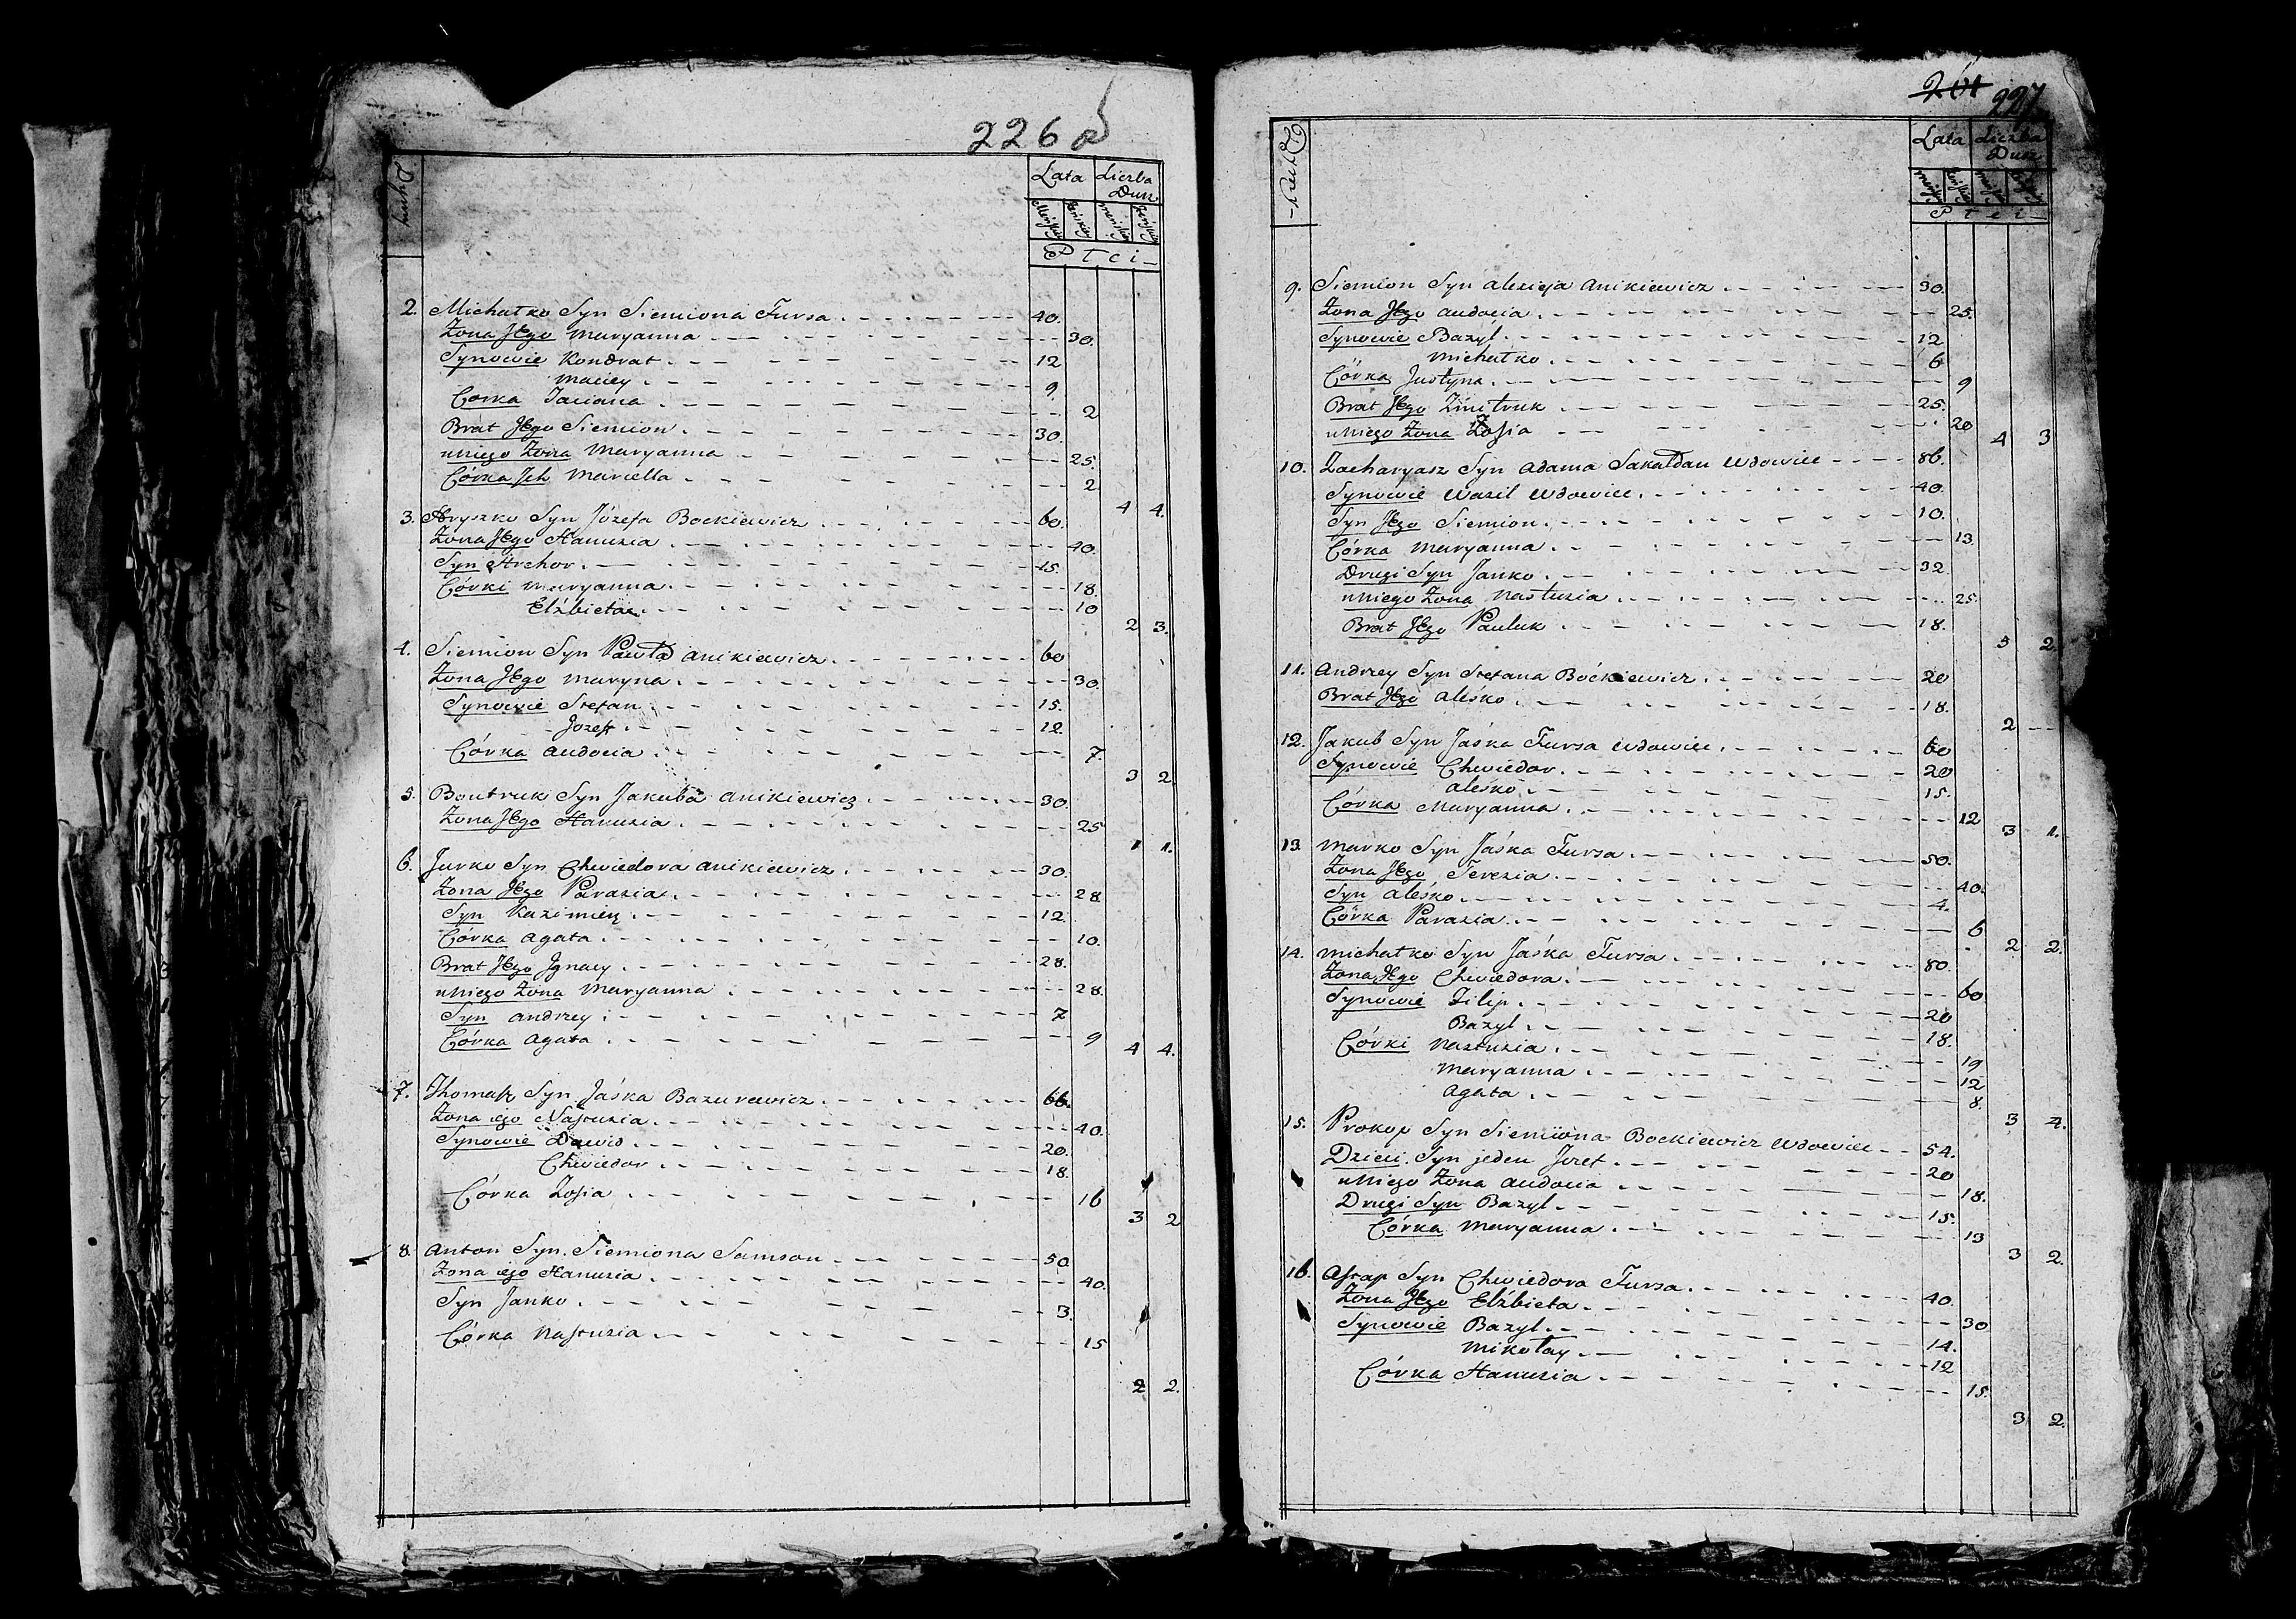 226
Dymy
Lata Liczba Dusz
męzkie żeńskie męzkie żeńskie
Płci
2. Michałko Syn Siemiona Fursa 40.
Żona Jego Maryanna 30.
Synowie Kondrat 12
Maciey 9.
Córka Taciana 2
Brat Jego Siemion 30.
u Niego Żona Maryanna 25.
Córka Ich Marcella 2.
4 4.
3. Hryszko Syn Józefa Bockiewicz 60.
Żona Jego Hanusia 40.
Syn Hrehor 15.
Córki Maryanna 18.
Elżbieta 10
2 3.
4. Siemion Syn Pawła Anikiewicz 60
Żona Jego Maryna 30.
Synowie Stefan 15.
Jozef 12
Córka Audocia 7.
3 2
5. Boutruk Syn Jakuba Anikiewicz 30.
Żona Jego Hanusia 25
1 1.
6. Jurko Syn Chwiedora Anikiewicz 30.
Żona Jego Parasia 28
Syn Kazimierz 12
Córka Agata 10.
Brat Jego Ignacy 28.
u Niego Żona Maryanna 28.
Syn Andrzey 7
Córka Agata 9
4 4.
7. Thomasz Syn Jaśka Bazurewicz 66.
Żona iego Nastusia 40.
Synowie Dawid 20.
Chwiedor 18.
Córka Zosia 16
3 2
8. Anton Syn Siemiona Samson 50
Żona iego Hanusia 40.
Syn Janko 3.
Córka Nastusia 15
2 2.
201 227
Dymy
Lata Liczba Dusz
męzkie żeńskie męzkie żeńskie
Płci
9. Siemion Syn Alexieja Anikiewicz 30.
Żona Jego Audocia 25.
Synowie Bazyl 12
Michałko 6
Córka Justyna 9
Brat Jego Zmitruk 25.
u Niego Żona Zosia 20
4 3
10. Zacharyasz Syn Adama Sakałdan Wdowiec 86.
Synowie Wasil Wdowiec 40.
Syn Jego Siemion 10.
Córka Maryanna 13
Drugi Syn Janko 32
u Niego Żona Nastusia 25.
Brat Jego Pauluk 18.
5 2.
11. Andrzey Syn Stefana Boćkiewicz 20
Brat Jego Aleśko 18.
2 —
12. Jakub Syn Jaśka Fursa Wdowiec 60
Synowie Chwiedor 20
Aleśko 15.
Córka Maryanna 12
3 1.
13. Marko Syn Jaśka Fursa 50.
Żona Jego Teresia 40.
Syn Aleśko 4.
Córka Parasia 6
2 2.
14. Michałko Syn Jaśka Fursa 80.
Żona Jego Chwiedora 60
Synowie Filip 20
Bazyl 18.
Córki Nastusia 19
Maryanna 12
Agata 8.
3 4.
15. Prokop Syn Siemiona Bockiewicz Wdowiec 54.
Dzieci Syn jeden Jozef 20
u Niego Żona Audocia 18.
Drugi Syn Bazyl 15.
Córka Maryanna 13
3 2.
16. Astap Syn Chwiedora Fursa 40.
Żona Jego Elżbieta 30
Synowie Bazyl 14.
Mikołay 12
Córka Hanusia 15.
3 2.